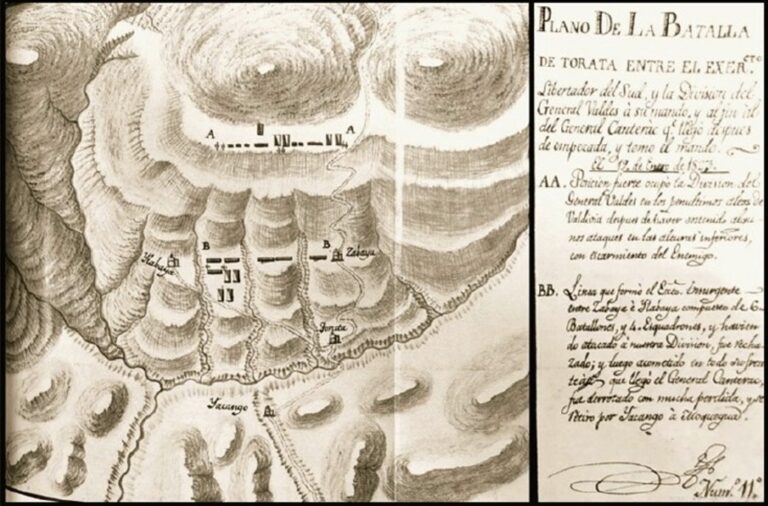 A A
B B
Ilabaya
Zabaya
Torata
Yacango
PLANO DE LA BATALLA
DE TORATA ENTRE EL EXER.cto
Libertador del Sud, y la Division del
General Valdes à su mando, y al fin
del General Canterac q.e llegó despues
de empezada, y tomo el mando.
El 19 de Enero de
AA. Posicion fuerte ocupó la Division del
General Valdes en los penultimos altos de
Valdivia despues de haver sostenido algu
nos ataques en las alturas inferiores,
con escarmiento del Enemigo.
BB. Linea que formó el Exto. Insurgente
entre Zabaya è Ilabaya compuesto de 6
Batallones, y 4. Esquadrones, y havien
do atacado à nuestra Division, fue recha
zado; y luego acometido en todo su fren
te que llegó el General Canterac,
fue derrotado con mucha perdida, y se
retiro por Yacango à Moquegua.
Num.o 11.o